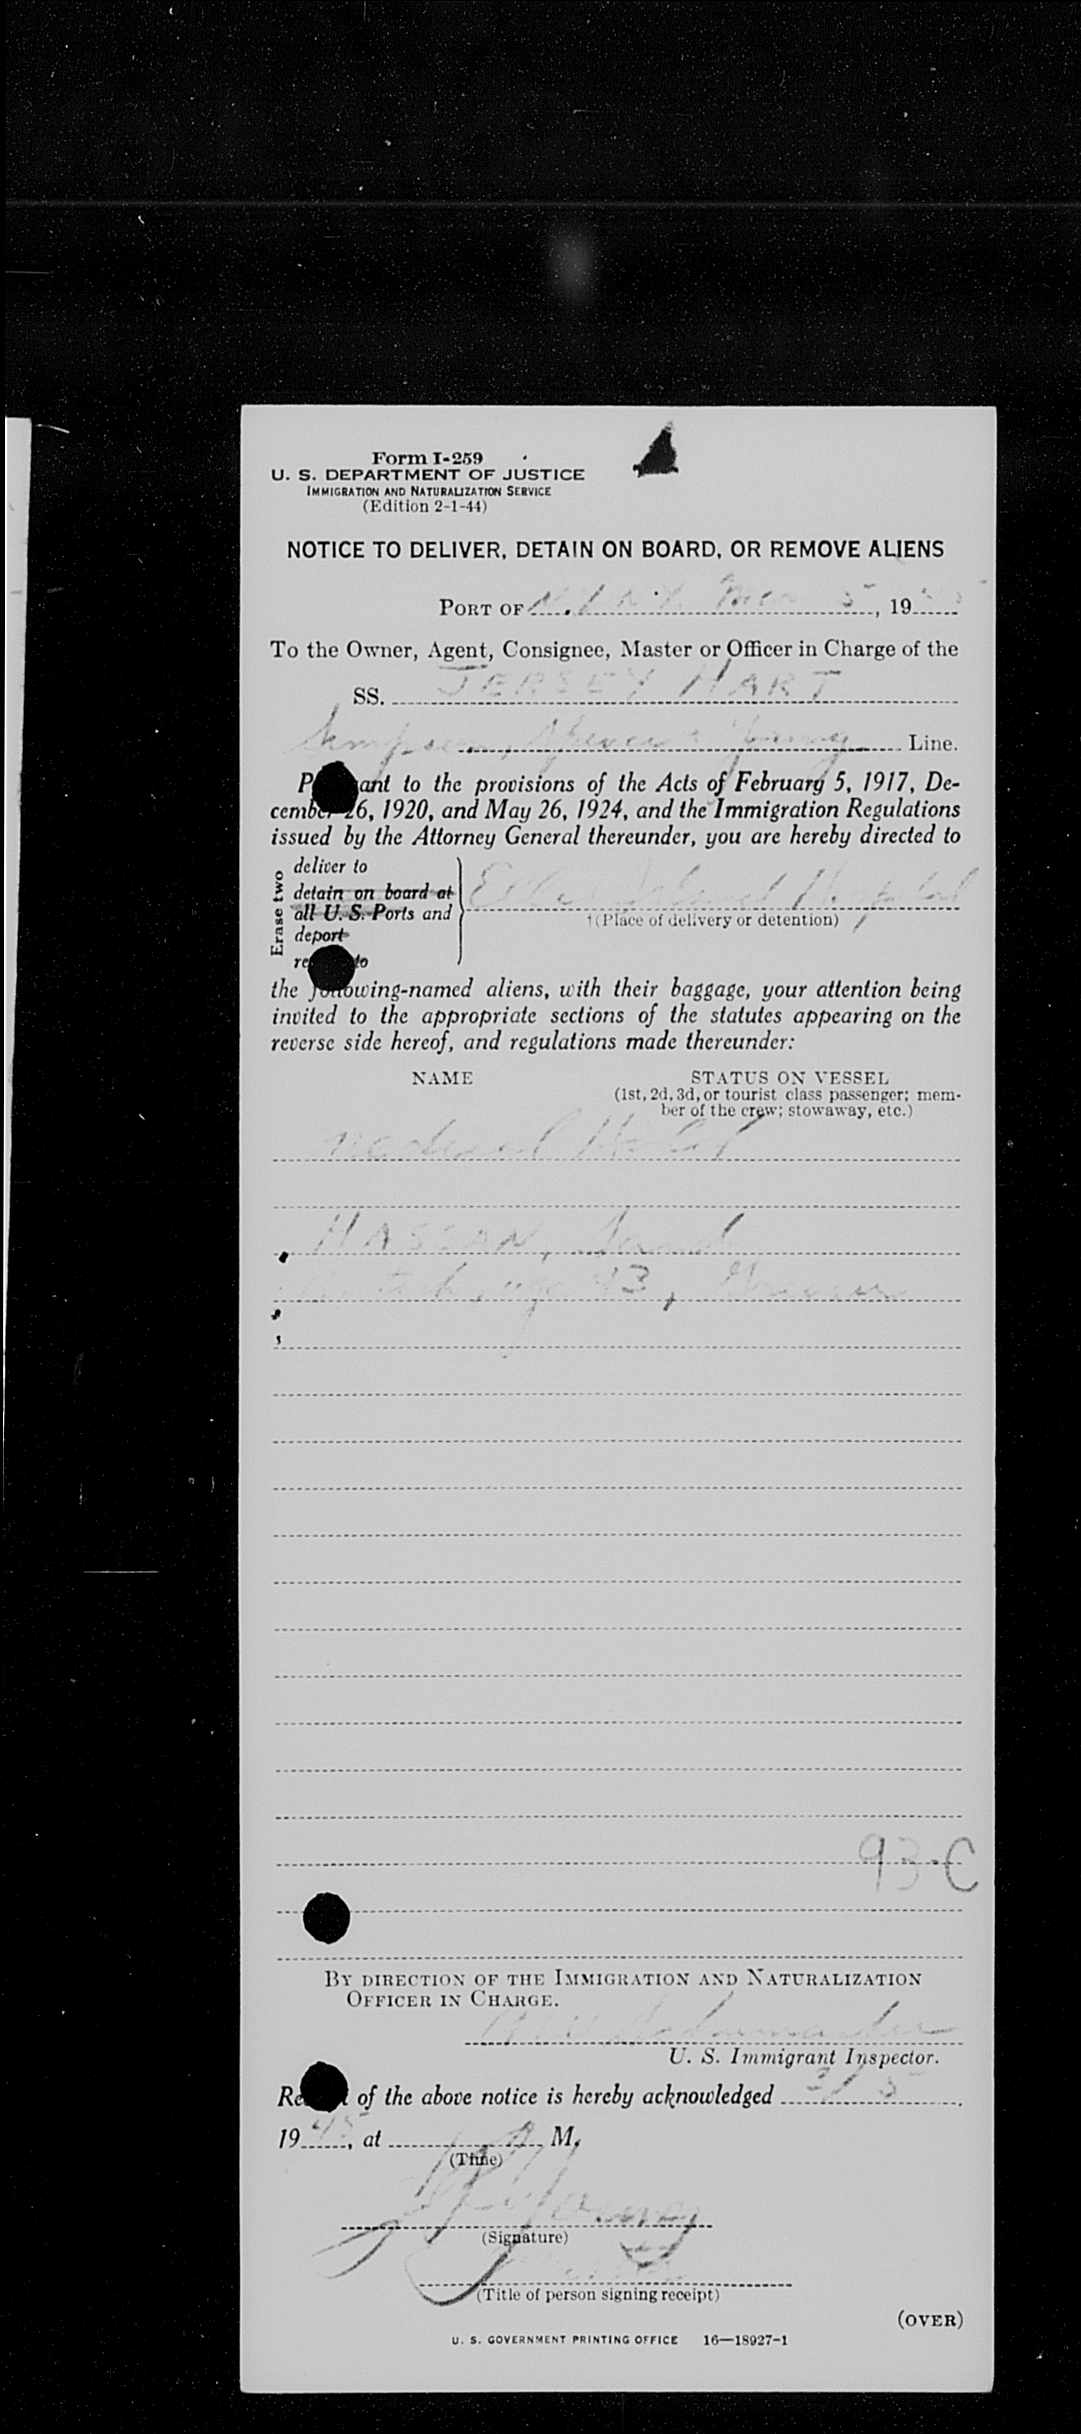 Form I-259
U. S. DEPARTMENT OF JUSTICE
IMMIGRATION AND NATURALIZATION SERVICE
(Edition 2-1-44)
NOTICE TO DELIVER, DETAIN ON BOARD, OR REMOVE ALIENS
PORT OF N.Y. N.Y. Mar 5, 19
To the Owner, Agent, Consignee, Master or Officer in Charge of the
SS. JERSEY HART
Simpson, Spence & Young Line.
to the provisions of the Acts of February 5, 1917, De-
cember 26, 1920, and May 26, 1924, and the Immigration Regulations
issued by the Attorney General thereunder, you are hereby directed to
Erase two
deliver to
detain on board at
all U. S. Ports and
deport
to
Ellis Island Hospital
†(Place of delivery or detention)
the following-named aliens, with their baggage, your attention being
invited to the appropriate sections of the statutes appearing on the
reverse side hereof, and regulations made thereunder:
NAME
STATUS ON VESSEL
(1st, 2d, 3d, or tourist class passenger; mem-
ber of the crew; stowaway, etc.)
Medical Hold
HASSAN,
age 43,
93-C
BY DIRECTION OF THE IMMIGRATION AND NATURALIZATION
OFFICER IN CHARGE.
U. S. Immigrant Inspector.
of the above notice is hereby acknowledged 3/5
1945, at A M.
(Time)
Young
(Signature)
(Title of person signing receipt)
(OVER)
U. S. GOVERNMENT PRINTING OFFICE 16—18927-1